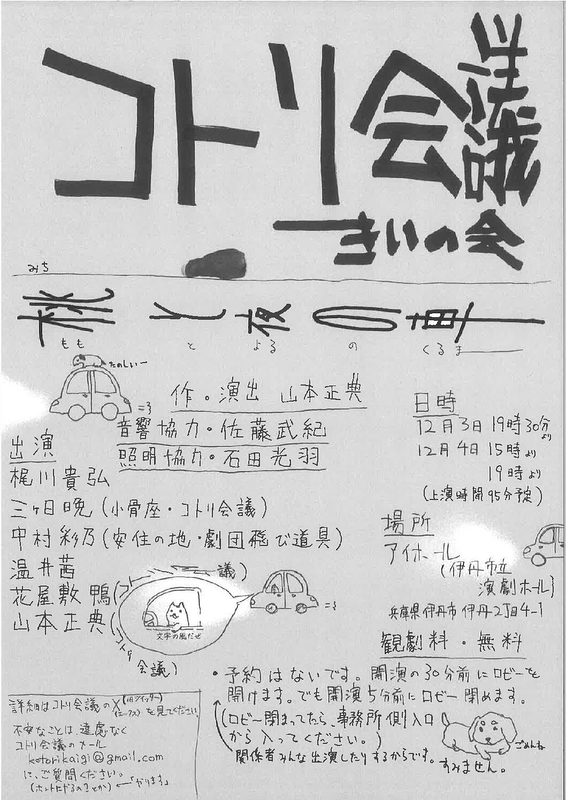 コトリ会議
きいの会
みち
桃と夜の車
もも と よる の くるま
たのしいー
作。演出 山本正典
音響協力・佐藤武紀
照明協力・石田光羽
出演
梶川貴弘
三ヶ日晩(小骨座・コトリ会議)
中村彩乃(安住の地・劇団飛び道具)
温井茜
花屋敷鴨
山本正典
(コトリ会議)
文字の風だぜ
日時
12月3日 19時30分より
12月4日 15時より
19時より
(上演時間95分予定)
場所
アイホール
(伊丹市立
演劇ホール)
兵庫県伊丹市伊丹2丁目4-1
観劇料・無料
・予約はないです。開演の30分前にロビーを
開けます。でも開演5分前にロビー閉めます。
(ロビー閉まってたら、事務所側入口
から入ってください。)
関係者みんな出演したりするからです。
すみません。
ごめんね
詳細はコトリ会議のX(旧ツイッター)
(エックス)を見てください
不安なことは遠慮なく
コトリ会議のメール
kotorikaigi@gmail.com
に、ご質問ください。